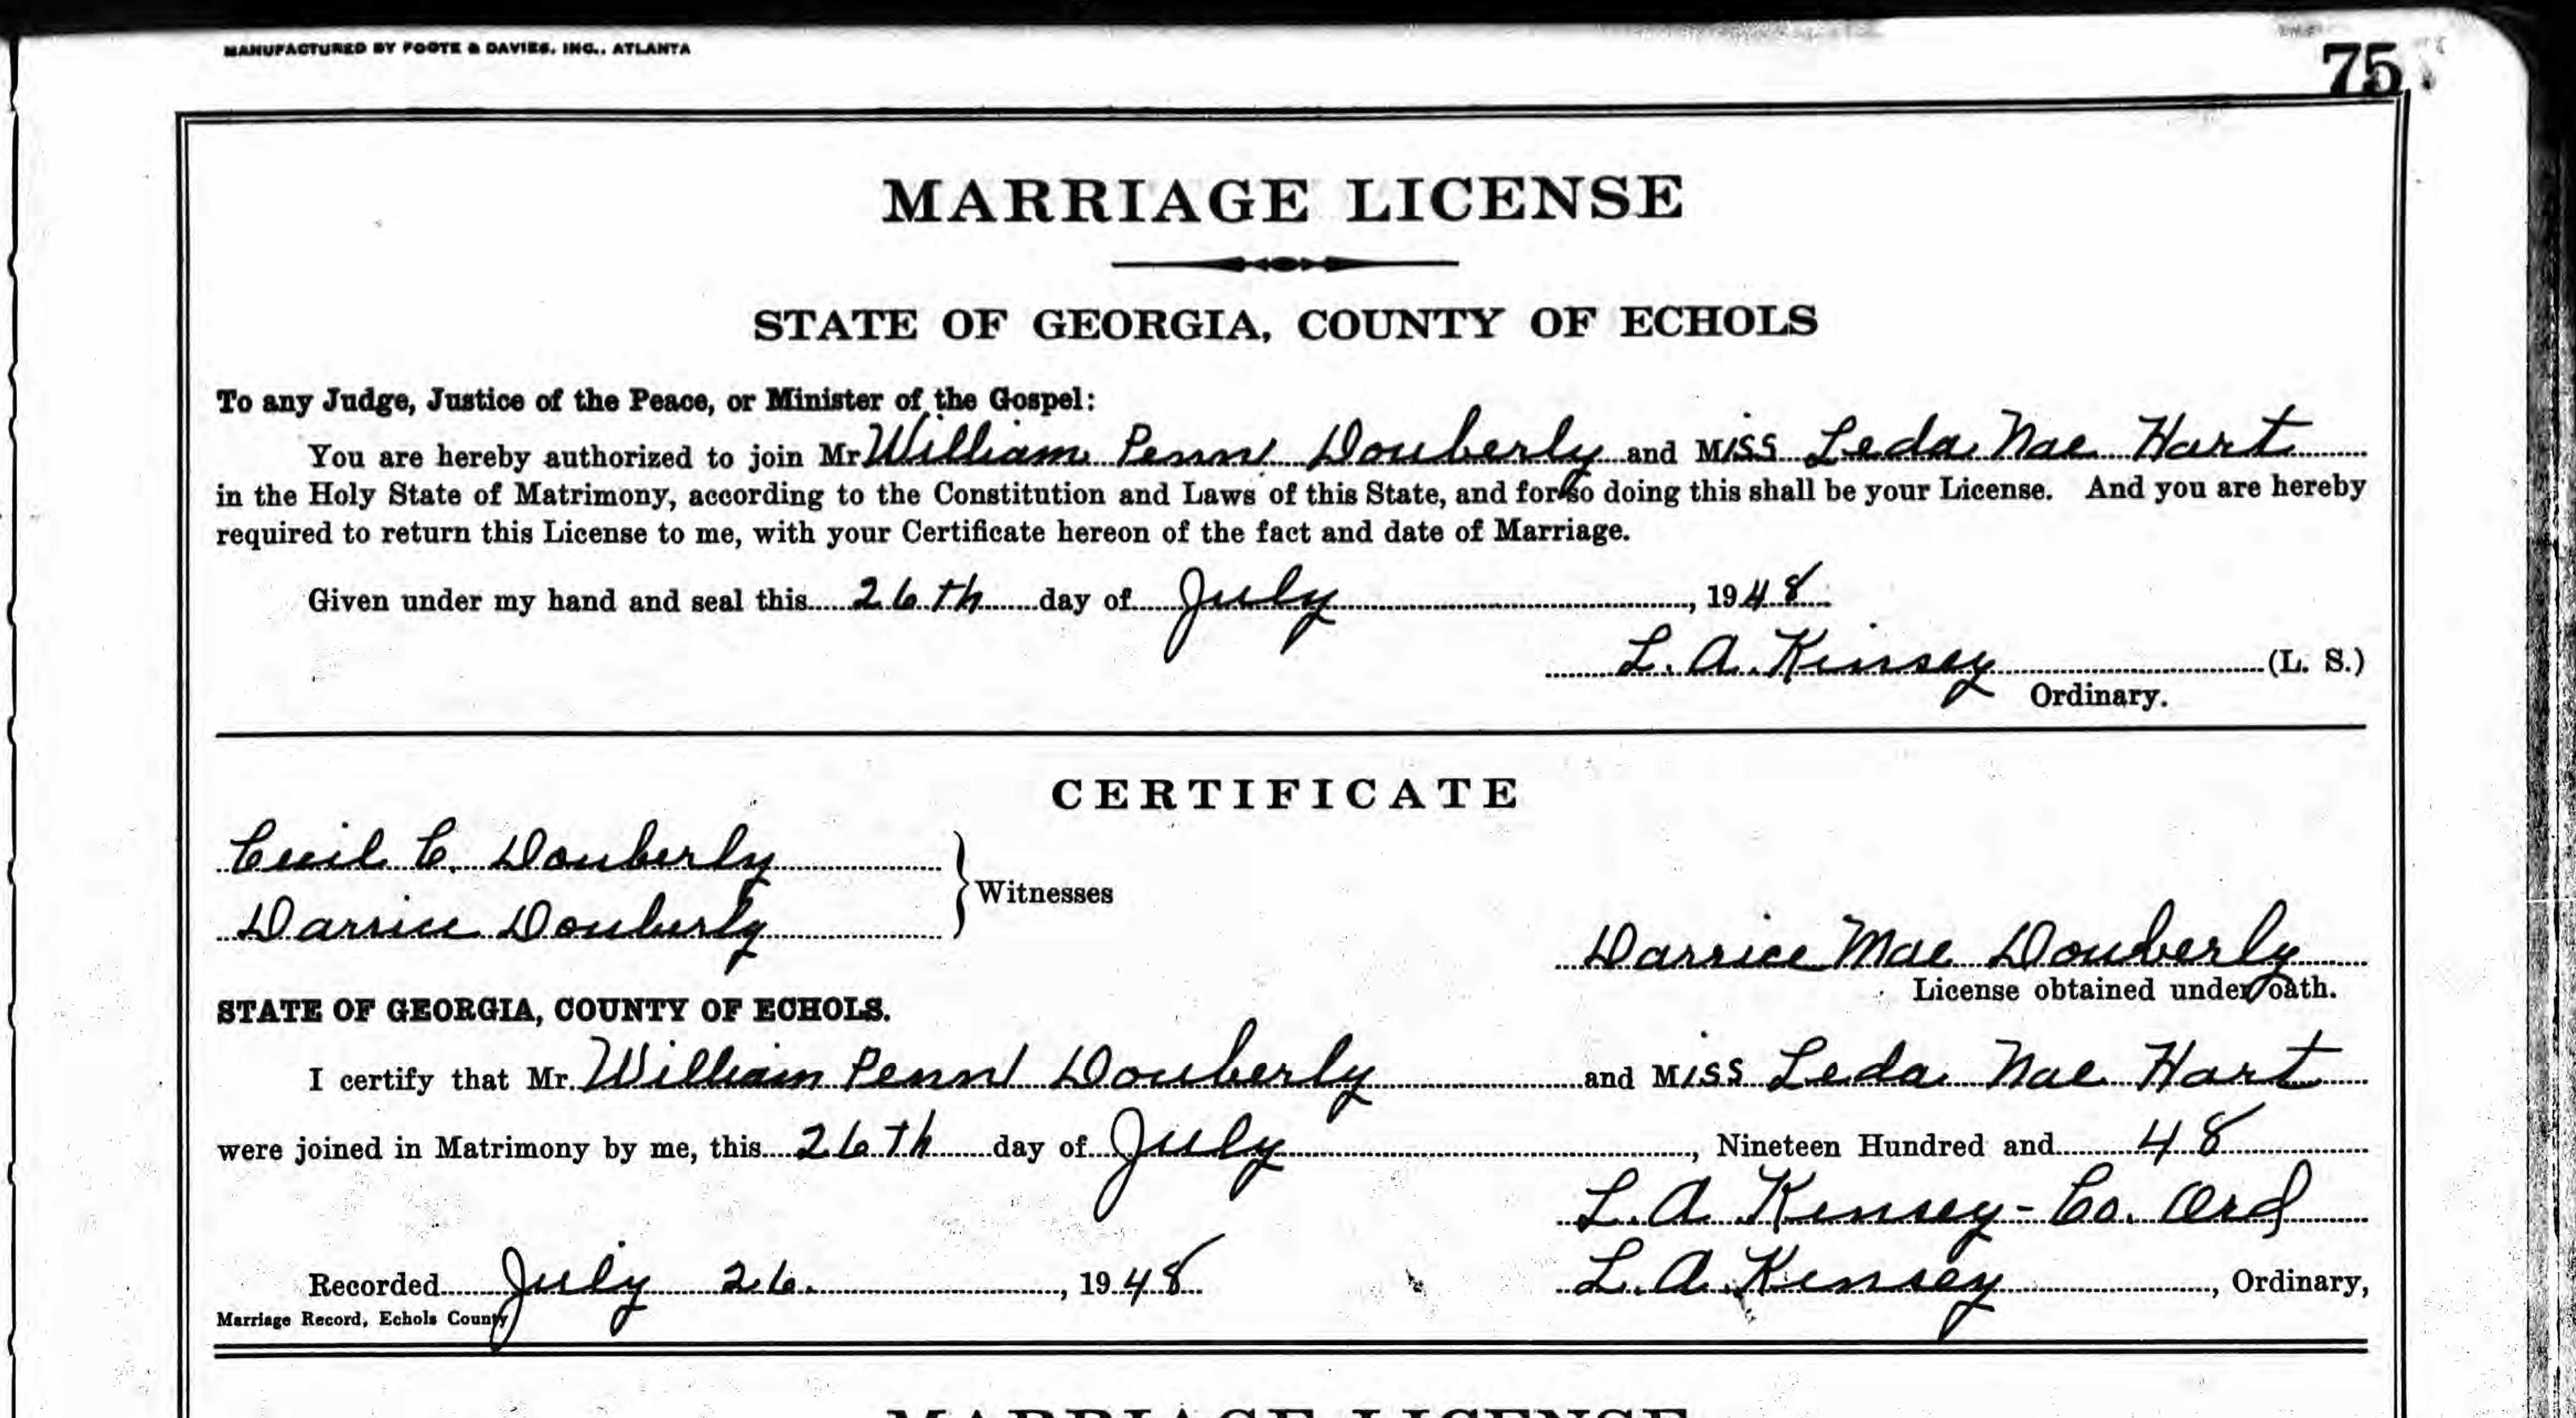 MANUFACTURED BY FOOTE & DAVIES, INC., ATLANTA
75
MARRIAGE LICENSE
STATE OF GEORGIA, COUNTY OF ECHOLS
To any Judge, Justice of the Peace, or Minister of the Gospel:
You are hereby authorized to join Mr William Penn Douberly and MISS Leda Nae Hart
in the Holy State of Matrimony, according to the Constitution and Laws of this State, and for so doing this shall be your License. And you are hereby
required to return this License to me, with your Certificate hereon of the fact and date of Marriage.
Given under my hand and seal this 26th day of July, 1948
L. A. Kinsey (L. S.)
Ordinary.
CERTIFICATE
Cecil C. Douberly
Darrice Douberly
Witnesses
Darrice Mae Douberly
License obtained under oath.
STATE OF GEORGIA, COUNTY OF ECHOLS.
I certify that Mr. William Penn Douberly and MISS Leda Nae Hart
were joined in Matrimony by me, this 26th day of July, Nineteen Hundred and 48
L. A. Kinsey - Co. Ord
Recorded July 26., 1948 L. A. Kinsey, Ordinary,
Marriage Record, Echols County
MARRIAGE LICENSE